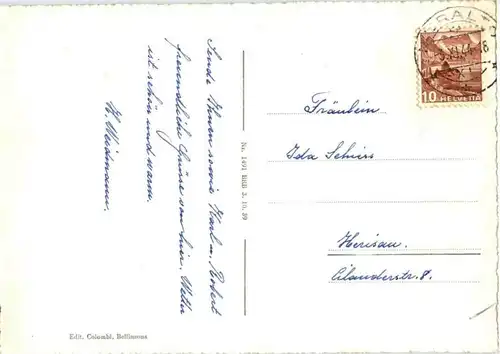 Sende Ihnen sowie Karl u. Robert
freundliche Grüsse von hier. Wetter
ist schön und warm.
H. Weidmann.
No. 1491 BRB 3. 10. 39
Edit. Colombi, Bellinzona
10 HELVETIA
Fräulein
Ida Schiess
Herisau.
Eilanderstr. 8.